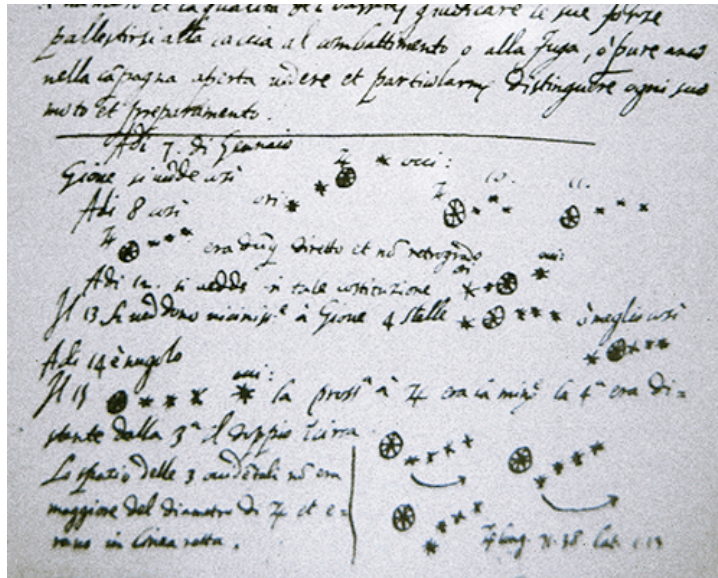 et la qualità dei Vasselli giudicare le sue forze
pallestirsi alla caccia al combattimento o alla fuga, ò pure anco
nella càpagna aperta uedere et particolarmᵉ distinguere ogni suo
moto et preparamento.
Adì 7. di Gennaio
Gioue si uedde così ♃ * occi:
Adì 8 così ori: * ♃ 10. 11.
♃ * * * era dūq diretto et nō retrogrado
ori: occi:
Adì 12. si uedde in tale costituzione * * *
Il 13 si ueddono à Gioue 4 stelle * * * * ò meglio così
Adì 14 è nugolo * * * *
Il 15 * * * occi: * la prossᵃ à ♃ era la minᵉ la 4ᵃ era di=
stante dalla 3ᵃ il doppio circa
Lo spazio delle 3 occidētali nō era
maggiore del diametro di ♃ et e=
rano in linea retta.
♃ long. 71.38. Lat. 1.13